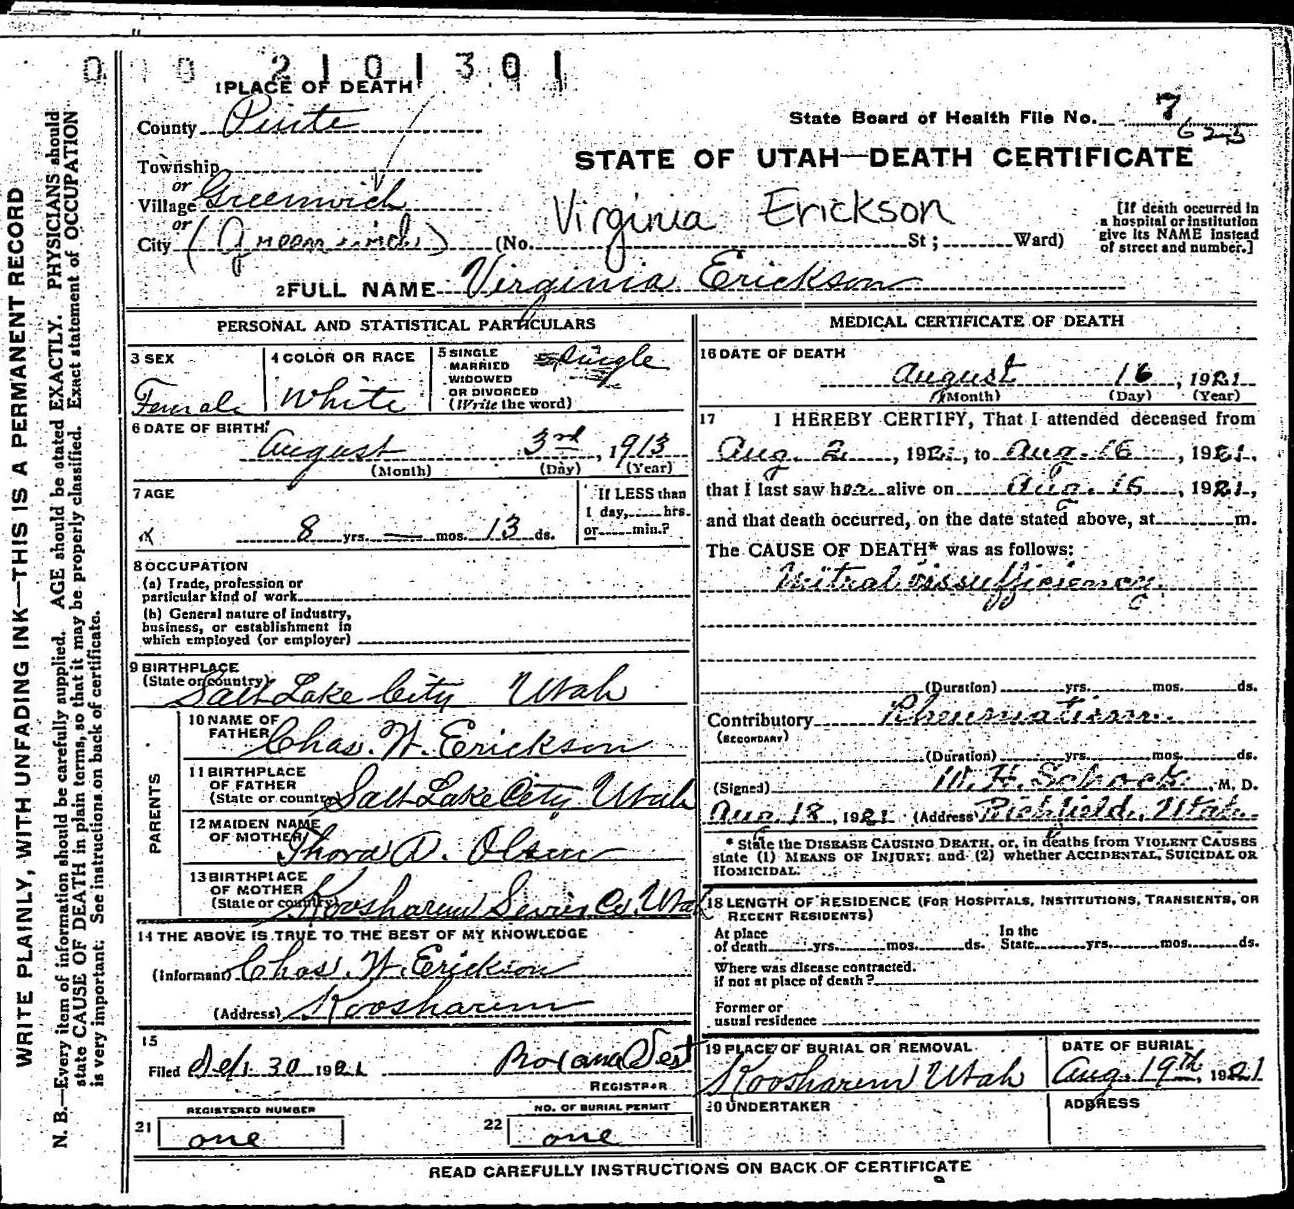 0 1 0 2 1 0 1 3 0 1
1 PLACE OF DEATH
County Piute
State Board of Health File No. 7
623
Township
or
Village Greenwich
or
City (Greenwich)
STATE OF UTAH—DEATH CERTIFICATE
Virginia Erickson
(No. St; Ward)
[If death occurred in
a hospital or institution
give its NAME instead
of street and number.]
2 FULL NAME Virginia Erickson
PERSONAL AND STATISTICAL PARTICULARS
3 SEX
Female
4 COLOR OR RACE
White
5 SINGLE
MARRIED
WIDOWED
OR DIVORCED
(Write the word)
Single
6 DATE OF BIRTH
August 3rd, 1913
(Month) (Day) (Year)
7 AGE
8 yrs. — mos. 13 ds.
If LESS than
1 day, hrs.
or min.?
8 OCCUPATION
(a) Trade, profession or
particular kind of work
(b) General nature of industry,
business, or establishment in
which employed (or employer)
9 BIRTHPLACE
(State or country)
Salt Lake City Utah
PARENTS
10 NAME OF
FATHER
Chas. W. Erickson
11 BIRTHPLACE
OF FATHER
(State or country)
Salt Lake City Utah
12 MAIDEN NAME
OF MOTHER
Thora A. Olsen
13 BIRTHPLACE
OF MOTHER
(State or country)
Koosharem Sevier Co. Utah
14 THE ABOVE IS TRUE TO THE BEST OF MY KNOWLEDGE
(Informant) Chas. W. Erickson
(Address) Koosharem
15
Filed 30 1921
REGISTRAR
REGISTERED NUMBER
21 one
NO. OF BURIAL PERMIT
22 one
MEDICAL CERTIFICATE OF DEATH
16 DATE OF DEATH
August 16, 1921
(Month) (Day) (Year)
17 I HEREBY CERTIFY, That I attended deceased from
Aug. 2, 1921, to Aug. 16, 1921,
that I last saw her alive on Aug. 16, 1921,
and that death occurred, on the date stated above, at m.
The CAUSE OF DEATH* was as follows:
Mitral insufficiency
(Duration) yrs. mos. ds.
Contributory Rheumatism
(SECONDARY)
(Duration) yrs. mos. ds.
(Signed) W. H. Schock, M. D.
Aug 18, 1921 (Address) Richfield, Utah.
* State the DISEASE CAUSING DEATH, or, in deaths from VIOLENT CAUSES
state (1) MEANS OF INJURY; and (2) whether ACCIDENTAL, SUICIDAL OR
HOMICIDAL.
18 LENGTH OF RESIDENCE (FOR HOSPITALS, INSTITUTIONS, TRANSIENTS, OR
RECENT RESIDENTS)
At place
of death yrs. mos. ds.
In the
State yrs. mos. ds.
Where was disease contracted.
if not at place of death?
Former or
usual residence
19 PLACE OF BURIAL OR REMOVAL
Koosharem Utah
DATE OF BURIAL
Aug. 19th, 1921
20 UNDERTAKER
ADDRESS
READ CAREFULLY INSTRUCTIONS ON BACK OF CERTIFICATE
WRITE PLAINLY, WITH UNFADING INK—THIS IS A PERMANENT RECORD
N. B.—Every item of information should be carefully supplied. AGE should be stated EXACTLY. PHYSICIANS should
state CAUSE OF DEATH in plain terms, so that it may be properly classified. Exact statement of OCCUPATION
is very important. See instructions on back of certificate.